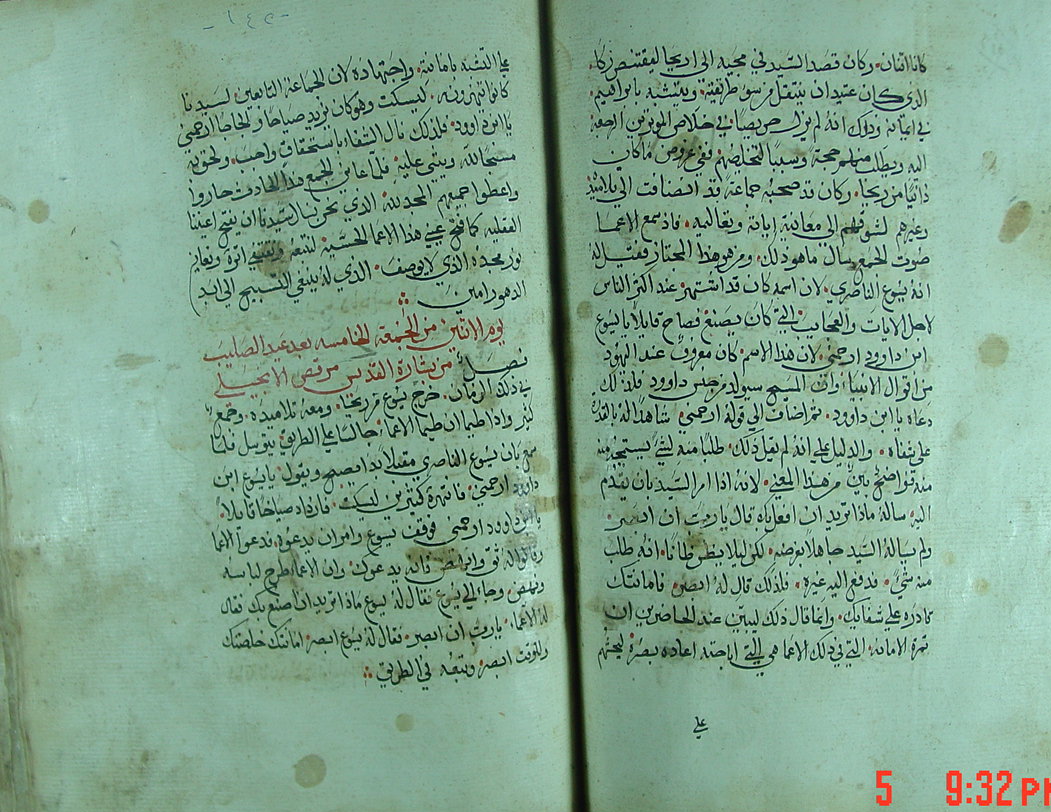 كانا اثنان. وكان قصد السيد في مجيه الى اريحا ليقتنص زكا
الذي كان عتيدان ينتقل من سو طريقته ويتشبه بابراهيم
في ايمانه وذلك انه لم يزل حريصا في خلاص الموثرين الصعود
اليه ويطلب منهم حجة وسببا لتخلصهم ففي عروض ما كان
ذاتيا من ريحا. وكان قد صحبه جماعة قد انضافت الى تلاميذه
رغبة هم لشوقهم الى معاينة اياته وتعاليمه. فاذ سمع الاعما
صوت الجمع سال ما هو ذلك. ومن هو هذا المجتاز فقيل له
انه يسوع الناصري. لان اسمه كان قد اشتهر عند اكثر الناس
لاجل الايات والعجايب التي كان يصنع فصاح قايلا يا يسوع
ابن داوود ارحمني. لان هذا الاسم كان معروف عند اليهود
من اقوال الانبيا. وان المسيح سيولد من جنس داوود فلذلك
دعاه يا ابن داوود. ثم اضاف الى قوله ارحمني شاهدا له بالقدرة
على شفاه. والدليل على انه لم يقل ذلك طلبا منه لشي يستميحه
منه فواضح باين من هذا المعني. لانه اذا امر السيد بان يتقدم
اليه ساله ماذا تريد ان افعل بك قال يا رب ان ابصر.
ولم يساله السيد جاهلا بغرضه. لكن ليلا يظن ظانا. انه طلب
منه شي. فدفع اليه غيره. فلذلك قال له ابصر. فامانتك
قادره على شفايك. وانما قال ذلك ليبين عند الحاضرين ان
ثمرة الامانه التي في ذلك الاعما هي التي اباحته اعاده بصره ليحثهم
على
على التشبه بامانته. واجتهاده لان الجماعة التابعين لسيدنا
كانوا ينتهرونه. ليسكت وهو كان يزيد صياحا والحاحا ارحمني
يا ابن داوود. فلذلك نال الشفا باستحقاق واجب. ولحق به
مسبحا لله ويثني عليه. فلما عاين الجمع هذا الحادث حاروا
واعطوا جميعهم المجد لله. الذي نحن نسال سيدنا ان يفتح اعيننا
العقليه كما فتح عيني هذا الاعما الحسيه. لنتبعه ونقتفي اثره ونعاين
نور مجده الذي لا يوصف. الذي له ينبغي التسبيح الى ابد
الدهور امين.
يوم الاثنين من الجمعه الخامسه بعد عيد الصليب
فصل من بشارة القديس مرقص الانجيلي
في ذلك الزمان. خرج يسوع من ريحا. ومعه تلاميذه. وجمع
كثير واذا طيما ابن طيما الاعما. جالسا على الطريق يتوسل فلما
سمع بان يسوع الناصري مقبلا بدا يصيح ويقول يا يسوع ابن
داوود ارحمني. فانتهره كثيرين ليسكت. فازداد صياحا قايلا.
يا ابن داوود ارحمني فوقف يسوع وامر ان يدعوه. فدعوا الاعما
وقالوا له ثق وانهض فانه يدعوك. وان الاعما طرح لباسه
ونهض. وجا الي يسوع فقال له يسوع ماذا تريد ان اصنع بك فقال
له الاعما. يا رب ان ابصر. فقال له يسوع ابصر. امانتك خلصتك
وللوقت ابصر وتبعه في الطريق
5 9:32 PM